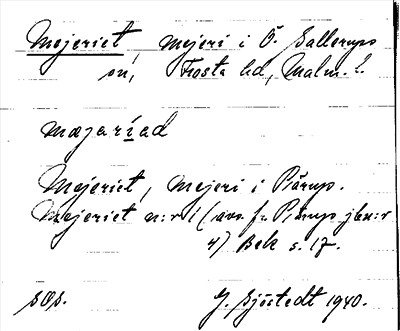 Mejeriet, mejeri i Ö. Sallerups
sn, Frosta hd, Malm. l.
mæjaríad
Mejeriet, mejeri i Pärup.
Mejeriet n:r 1 (avs. fr. Pärup jbn:r
4) Bek s. 17.
SOS.      G. Sjöstedt 1940.